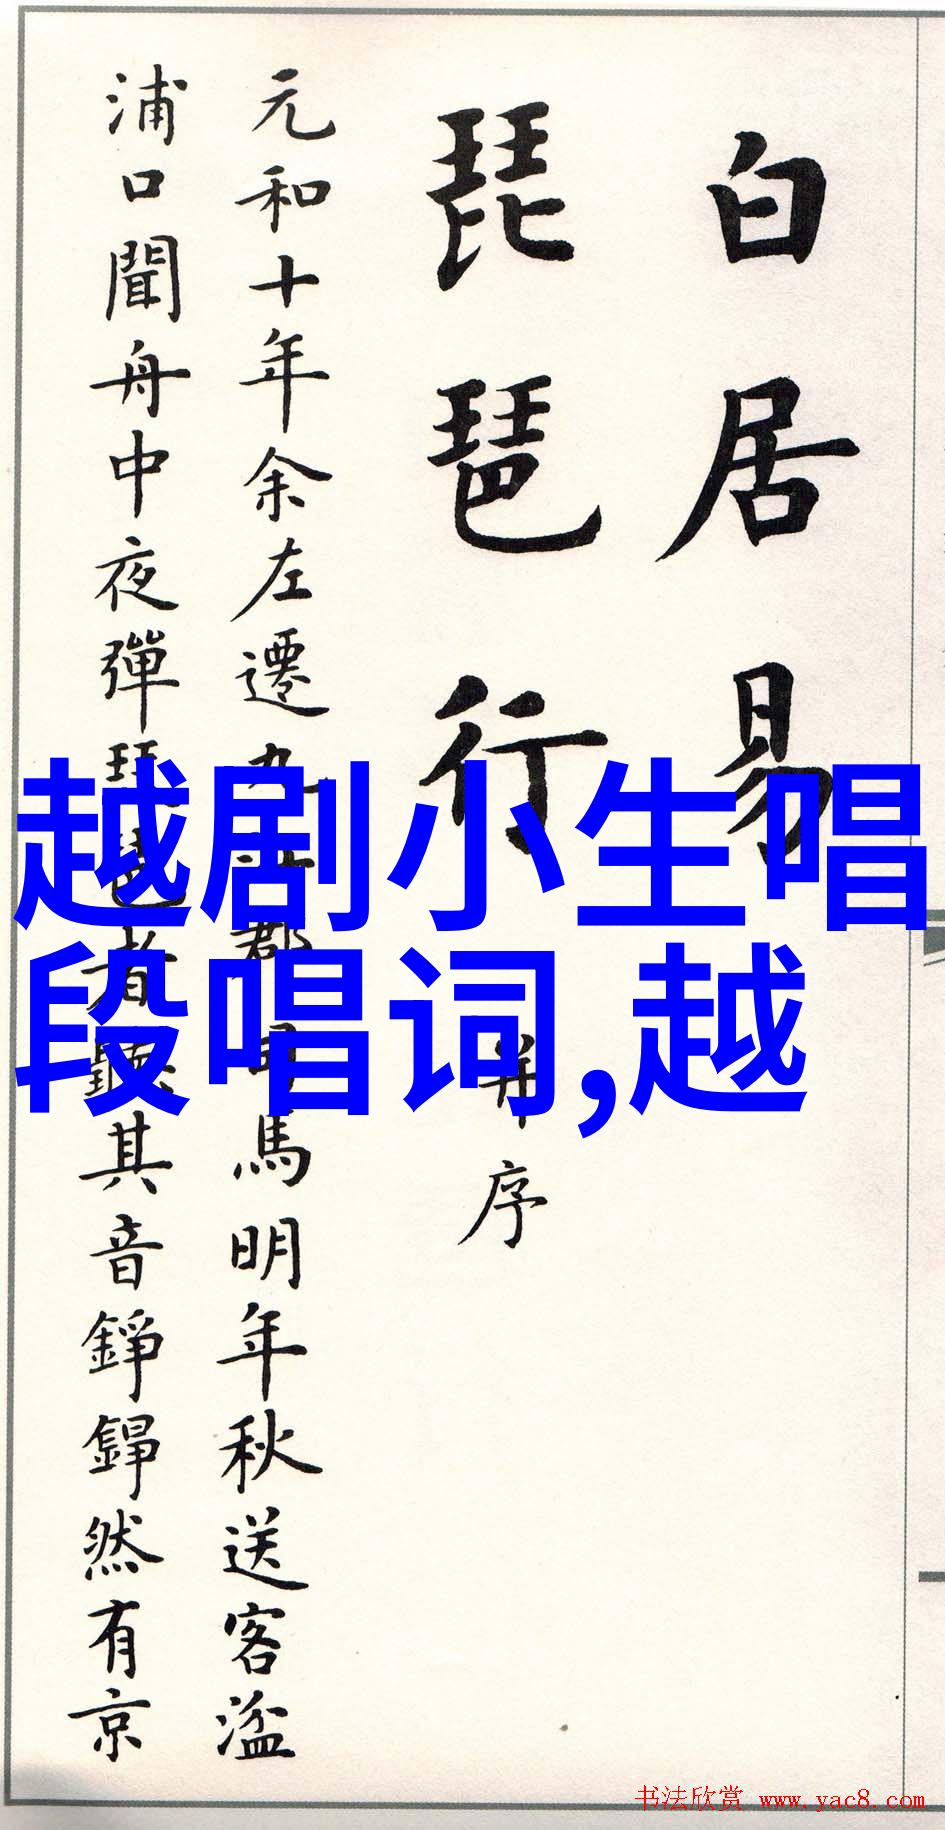 白居易
琵琶行 并序
元和十年余左遷九郡司馬明年秋送客湓
浦口聞舟中夜彈琵琶者聽其音錚錚然有京
越剧小生唱
段唱词,越
书法欣赏 www.yac8.com